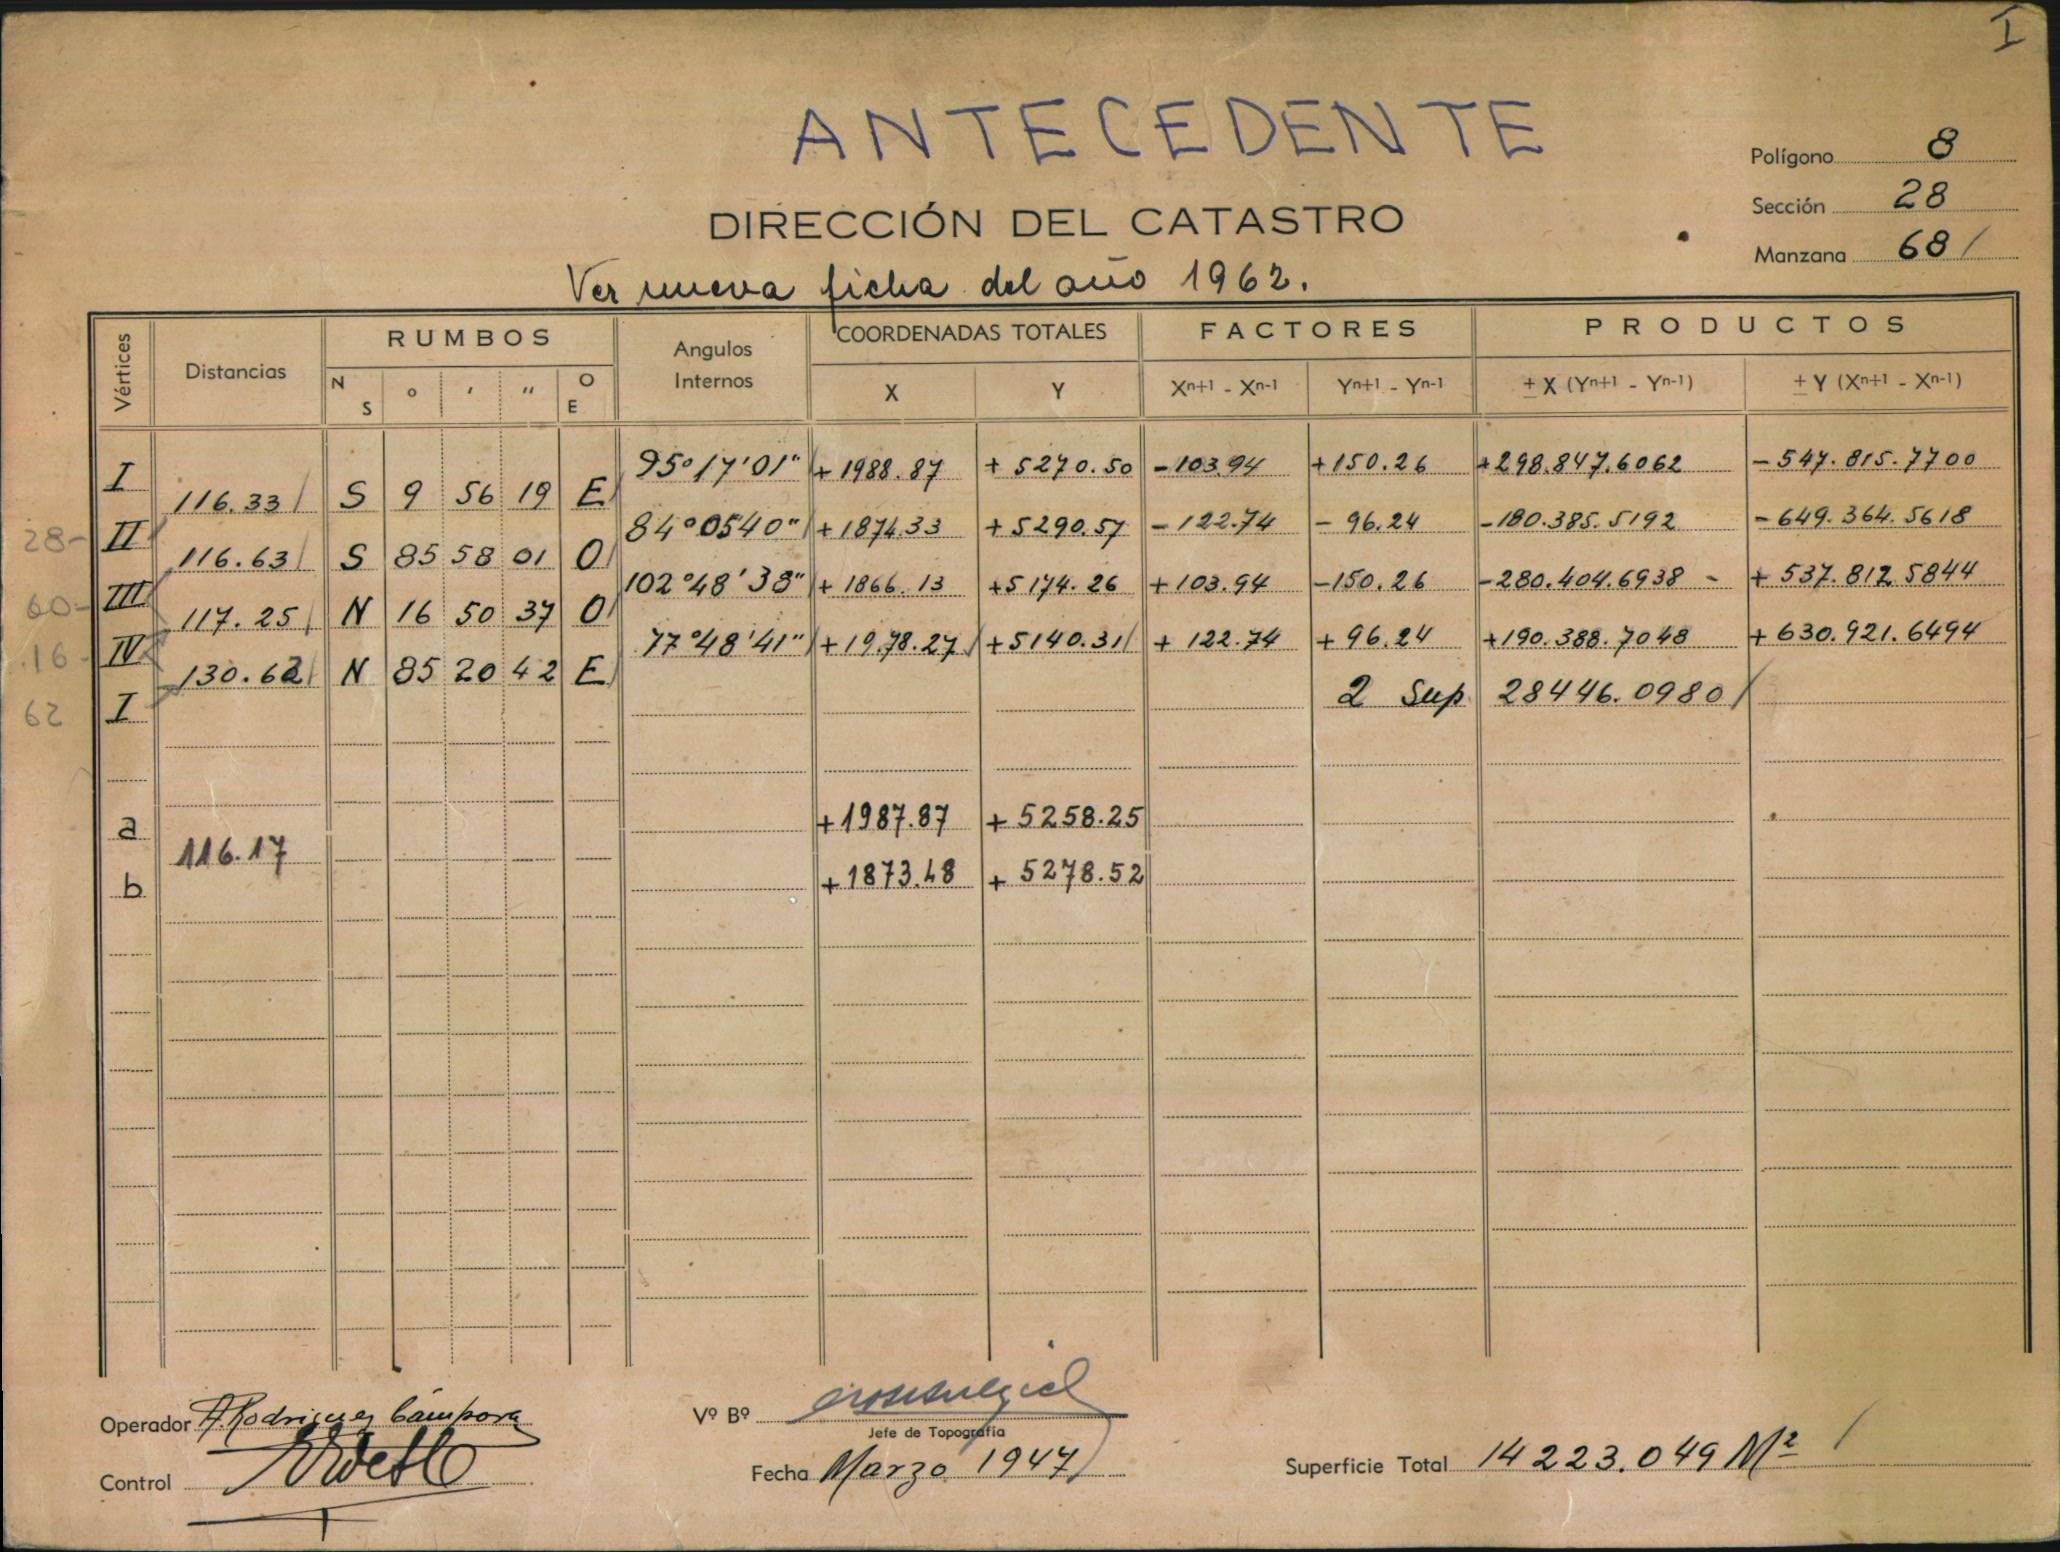 I
ANTECEDENTE
Polígono 8
DIRECCIÓN DEL CATASTRO
Sección 28
Manzana 68 /
Ver nueva ficha del año 1962.
Vértices Distancias RUMBOS Angulos Internos COORDENADAS TOTALES FACTORES PRODUCTOS
N S ° ′ ″ O E X Y Xⁿ⁺¹ - Xⁿ⁻¹ Yⁿ⁺¹ - Yⁿ⁻¹ ± X (Yⁿ⁺¹ - Yⁿ⁻¹) ± Y (Xⁿ⁺¹ - Xⁿ⁻¹)
I 95°17'01" +1988.87 +5270.50 -103.94 +150.26 +298.847.6062 -547.815.7700
116.33 S 9 56 19 E
28- II 84°05'40" +1874.33 +5290.57 -122.74 -96.24 -180.385.5192 -649.364.5618
116.63 S 85 58 01 O
60- III 102°48'38" +1866.13 +5174.26 +103.94 -150.26 -280.404.6938 - +537.812.5844
117.25 N 16 50 37 O
16- IV 77°48'41" +19.78.27 +5140.31 +122.74 +96.24 +190.388.7048 +630.921.6494
130.62 N 85 20 42 E
62 I 2 Sup 28446.0980 /
a +1987.87 +5258.25
116.17
b +1873.48 +5278.52
Operador A. Rodriguez Cámpora
Vº Bº
Jefe de Topografía
Control
Fecha Marzo 1947
Superficie Total 14223.049 M² /